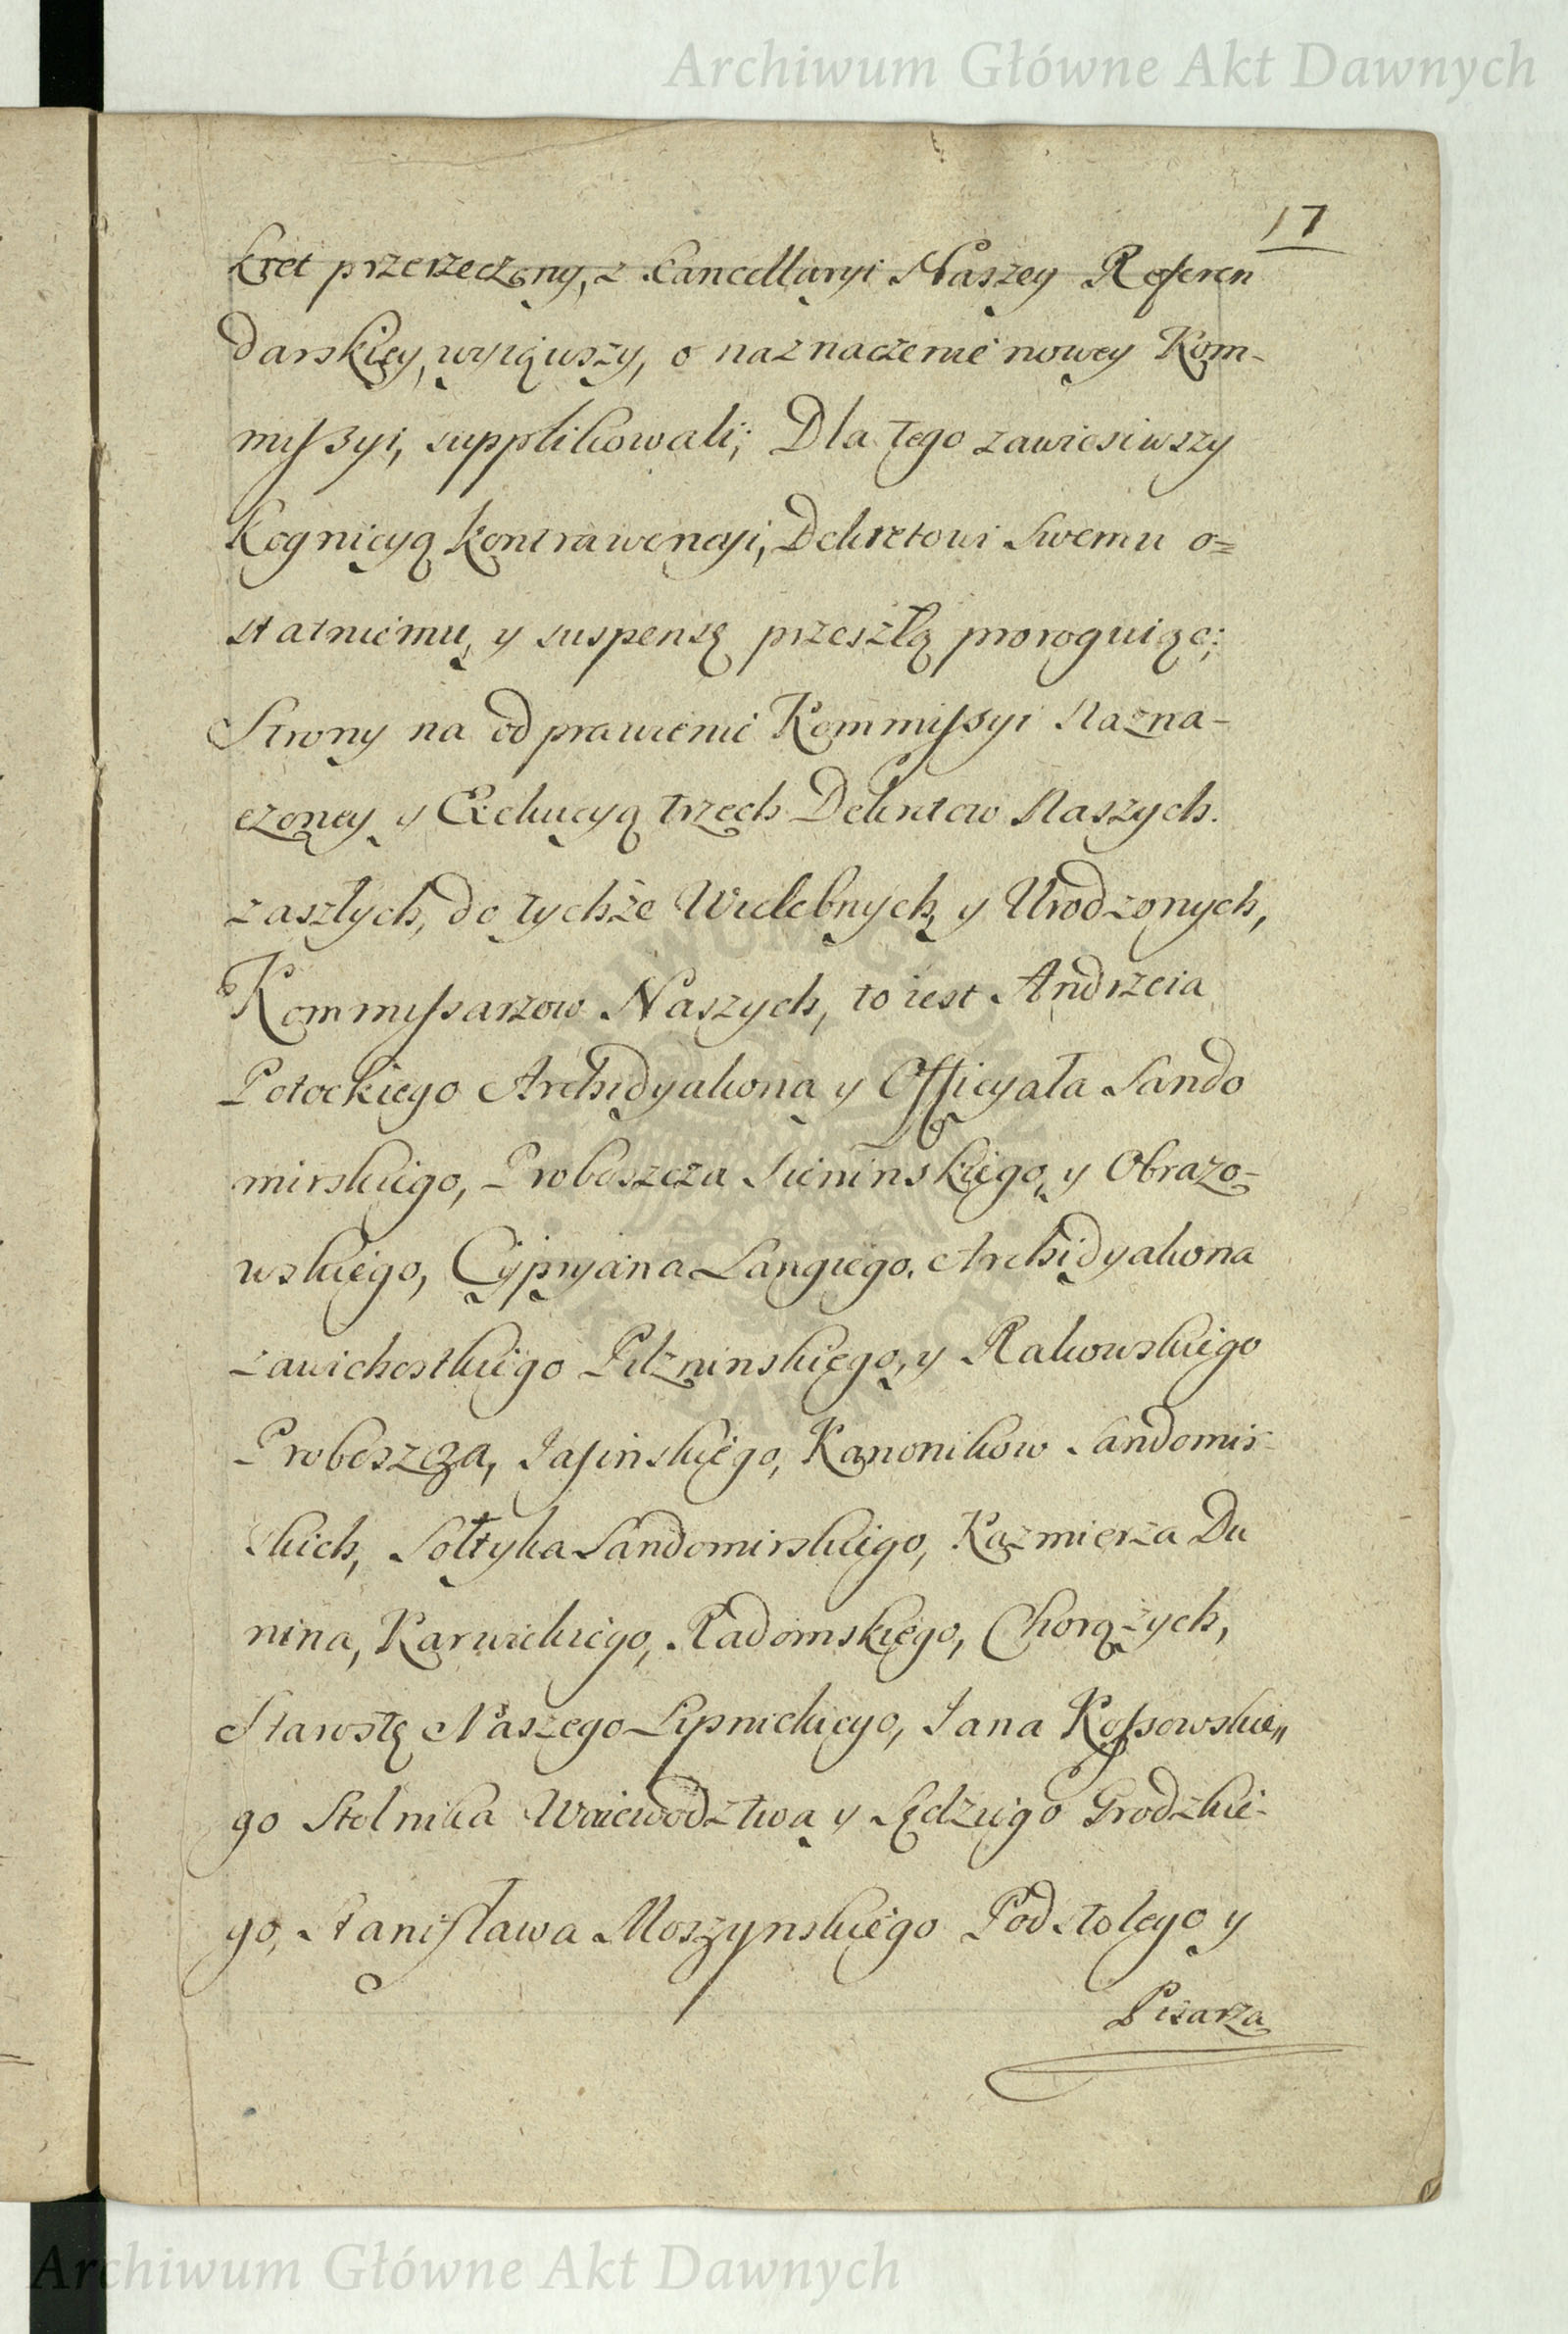 Archiwum Główne Akt Dawnych
17
kret przerzeczony, z Kancellaryi Naszey Referen
darskiey, wyiąwszy, o naznaczenie nowey Kom-
mißyi, supplikowali; Dla tego zawiesiwszy
Kognicyą kontrawencyi, Dekretowi Swemu o=
statniemu, y suspensę przeszłą proroguiąc;
Strony na odprawienie Kommißyi Nazna-
czoney y Exekucyą trzech Dekretow Naszych.
zaszłych, do tychże Wielebnych, y Urodzonych,
Kommißarzow Naszych, to iest Andrzeia
Potockiego Archidyakona y Officyała Sando
mirskiego, Proboszcza Sieninskiego, y Obrazo-
wskiego, Cypryana Langiego. Archidyakona
zawichostkiego Pilzninskiego, y Rakowskiego
Proboszcza, Jasinskiego, Kanonikow Sandomir-
skich, Sołtyka Sandomirskiego, Kazmierza Du
nina, Karwickiego, Radomskiego, Chorążych,
Starostę Naszego Lipnickiego, Jana Koßowskie„
go Stolnika Woiewodztwa y Sędziego Grodzkie-
go, Stanisława Moszynskiego Podstolego y
Pisarza
Archiwum Główne Akt Dawnych